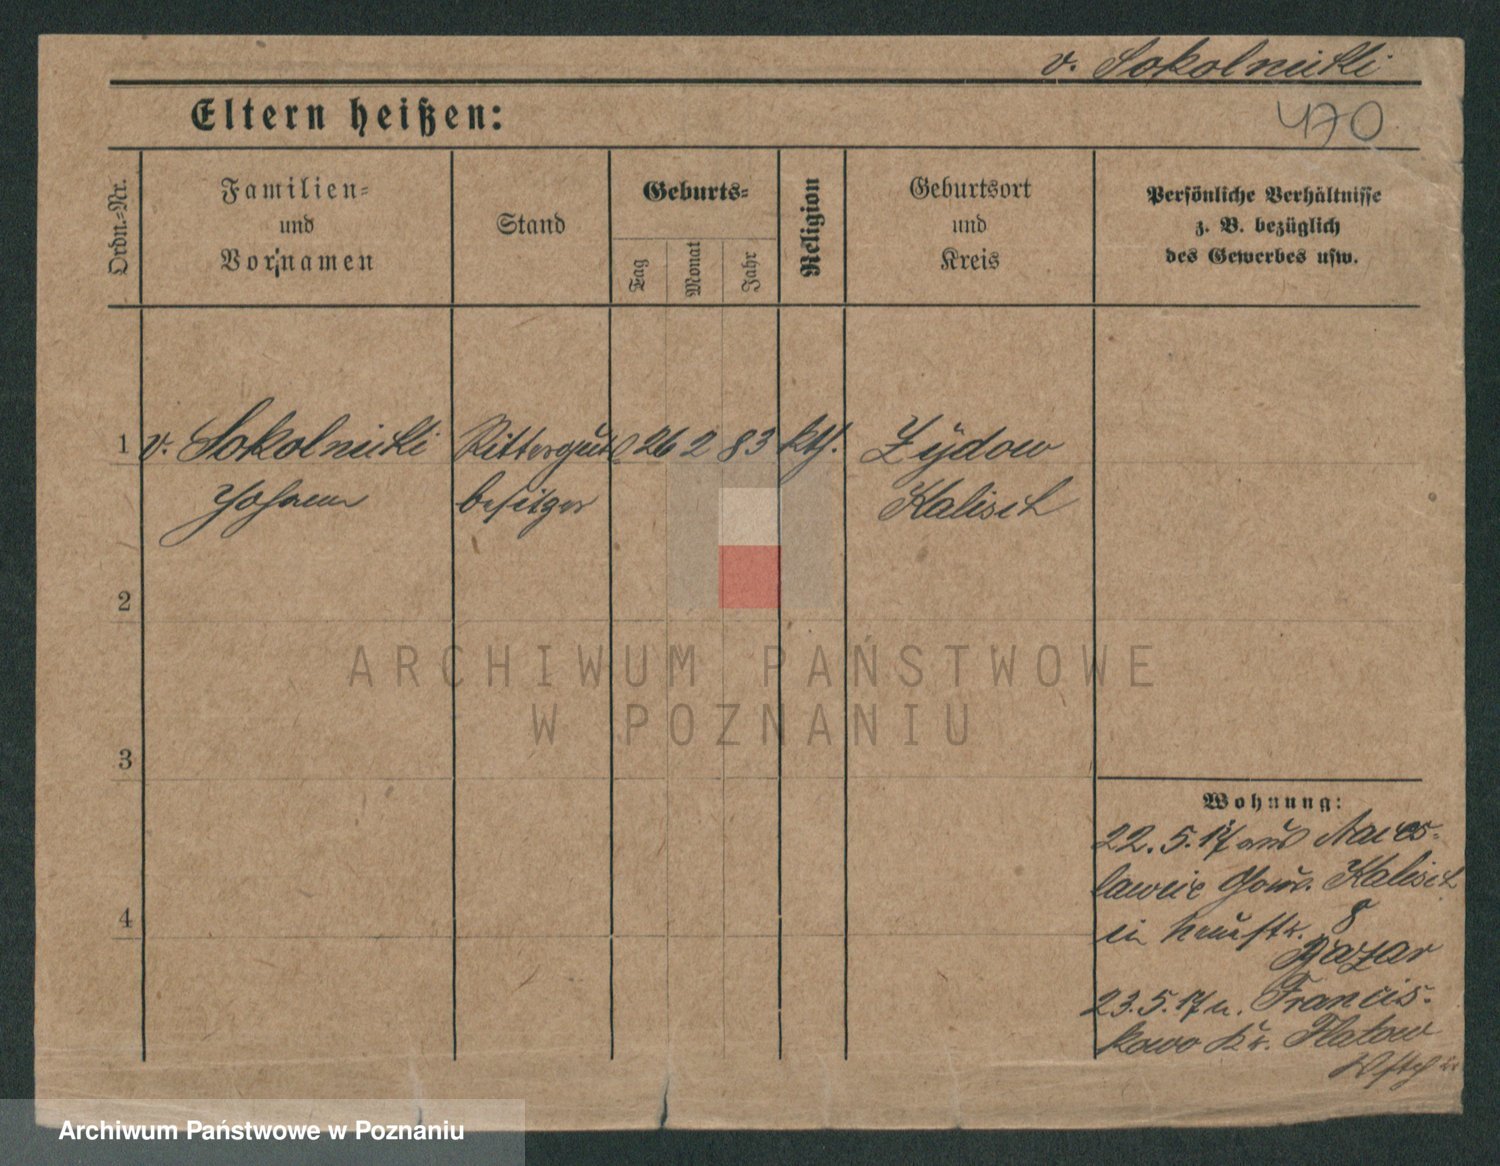 v. Sokolnicki
Eltern heißen:
470
Ordn.=Nr.
Familien=
und
Vornamen
Stand
Geburts=
Tag
Monat
Jahr
Religion
Geburtsort
und
Kreis
Persönliche Verhältnisse
z. B. bezüglich
des Gewerbes usw.
1 v. Sokolnicki Rittergut 26 2 83 kth. Zÿdow
Johann besitzer Kalisch
2
3
4
Wohnung:
22. 5. 17 aus
Gouv. Kalisch
in Neustr. 8
Bazar
23. 5. 17 n. Francis-
kowo Kr. Flatow
ARCHIWUM PAŃSTWOWE
W POZNANIU
Archiwum Państwowe w Poznaniu